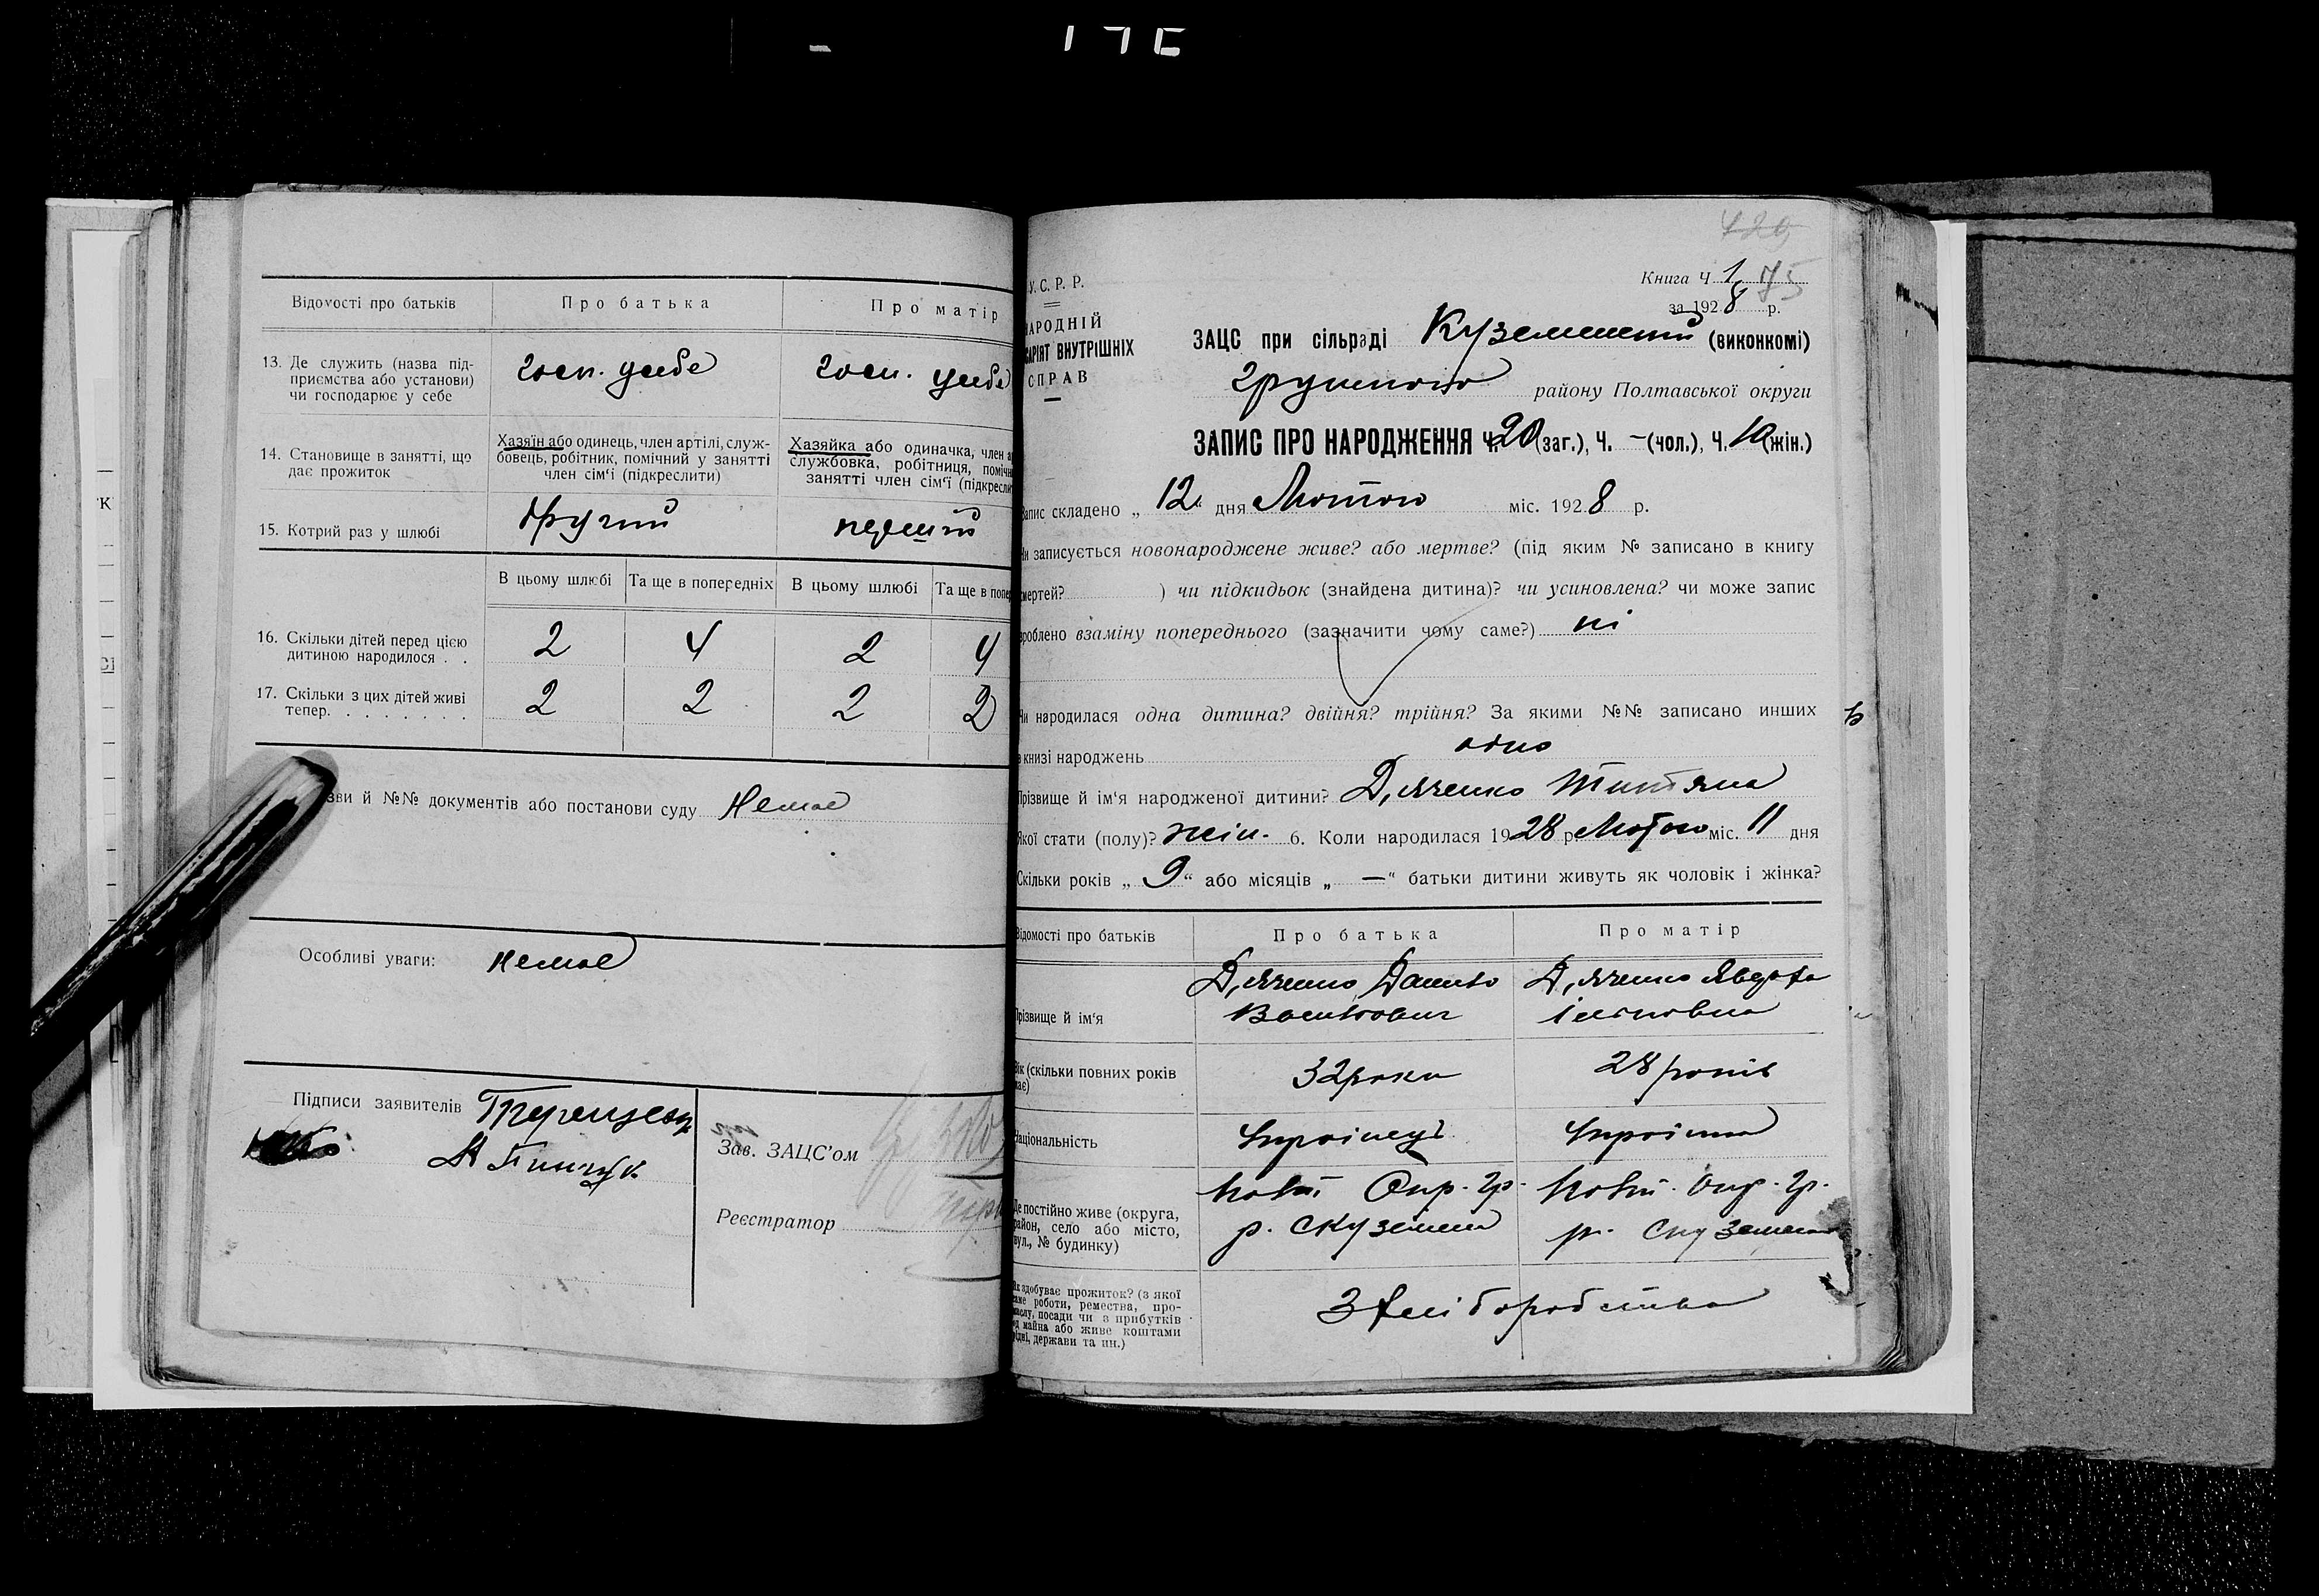 Відомості про батьків
Про батька
Про матір
13. Де служить (назва під-
приємства або установи)
чи господарює у себе
госп. усебе
госп. усебе
14. Становище в занятті, що
дає прожиток
Хазяїн або одинець, член артілі, служ-
бовець, робітник, помічний у занятті
член сім‘ї (підкреслити)
Хазяйка або одиначка, член а
службовка, робітниця, помічн
занятті член сім‘ї (підкресли
15. Котрий раз у шлюбі
другий
перший
В цьому шлюбі
Та ще в попередніх
В цьому шлюбі
Та ще в попер
16. Скільки дітей перед цією
дитиною народилося . .
2 4 2 4
17. Скільки з цих дітей живі
тепер. . . . . . . .
2 2 2 2
зви й №№ документів або постанови суду Немає
Особливі уваги: Немає
Підписи заявителів
Зав. ЗАЦС’ом
Реєстратор
У.С.Р.Р.
АРОДНІЙ
АРІЯТ ВНУТРІШНІХ
СПРАВ
Книга Ч 1 75
за 1928 р.
ЗАЦС при сільраді (виконкомі)
району Полтавської округи
ЗАПИС ПРО НАРОДЖЕННЯ Ч. 20 (заг.), Ч. – (чол.), Ч. 10 (жін.)
Запис складено „ 12 “ дня Лютого міс. 1928 р.
Чи записується новонароджене живе? або мертве? (під яким № записано в книгу
смертей? ) чи підкидьок (знайдена дитина)? чи усиновлена? чи може запис
зроблено взаміну попереднього (зазначити чому саме?) ні
Чи народилася одна дитина? двійня? трійня? За якими №№ записано инших
в книзі народжень одно
Прізвище й ім‘я народженої дитини? Д,яченко Титяна
Якої стати (полу)? жін. 6. Коли народилася 1928 р. Лютого міс. 11 дня
Скільки років „ 9 “ або місяців „ — “ батьки дитини живуть як чоловік і жінка?
Відомості про батьків
Про батька
Про матір
Прізвище й ім‘я
Д,яченко Данило
Васильович
Д,яченко Явдоха
Вік (скільки повних років
має)
32 роки
28 років
Національність
Українець
Українка
Де постійно живе (округа,
район, село або місто,
вул., № будинку)
Полт. Окр. Гр.
р. с Куземин
Полт. Окр. Гр.
р. с Куземин
Як здобуває прожиток? (з якої
саме роботи, ремества, про-
мислу, посади чи з прибутків
од майна або живе коштами
рідні, держави та ин.)
З хліборобства